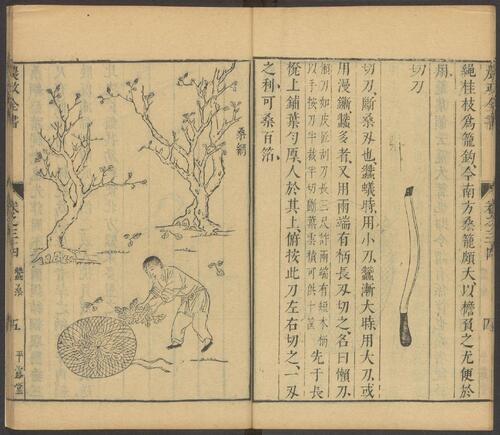 繩桂枝爲籠鈎今南方桑籠頗大以檐負之尤便於
用
切刀
切刀斷桑刃也蠶蟻時用小刀蠶漸大時用大刀或
用漫蠶多者又用兩端有柄長刃切之名曰懶刀
懶刀如皮匠刮刀長三尺許兩端有短木柄
以手按刀半裁半切斷葉雲積可供十筐
先于長
櫈上鋪葉勻厚人於其上俯按此刀左右切之一刃
之利可桑百箔
桑網
農政全書
卷之三十四
蠶桑
五
平露堂